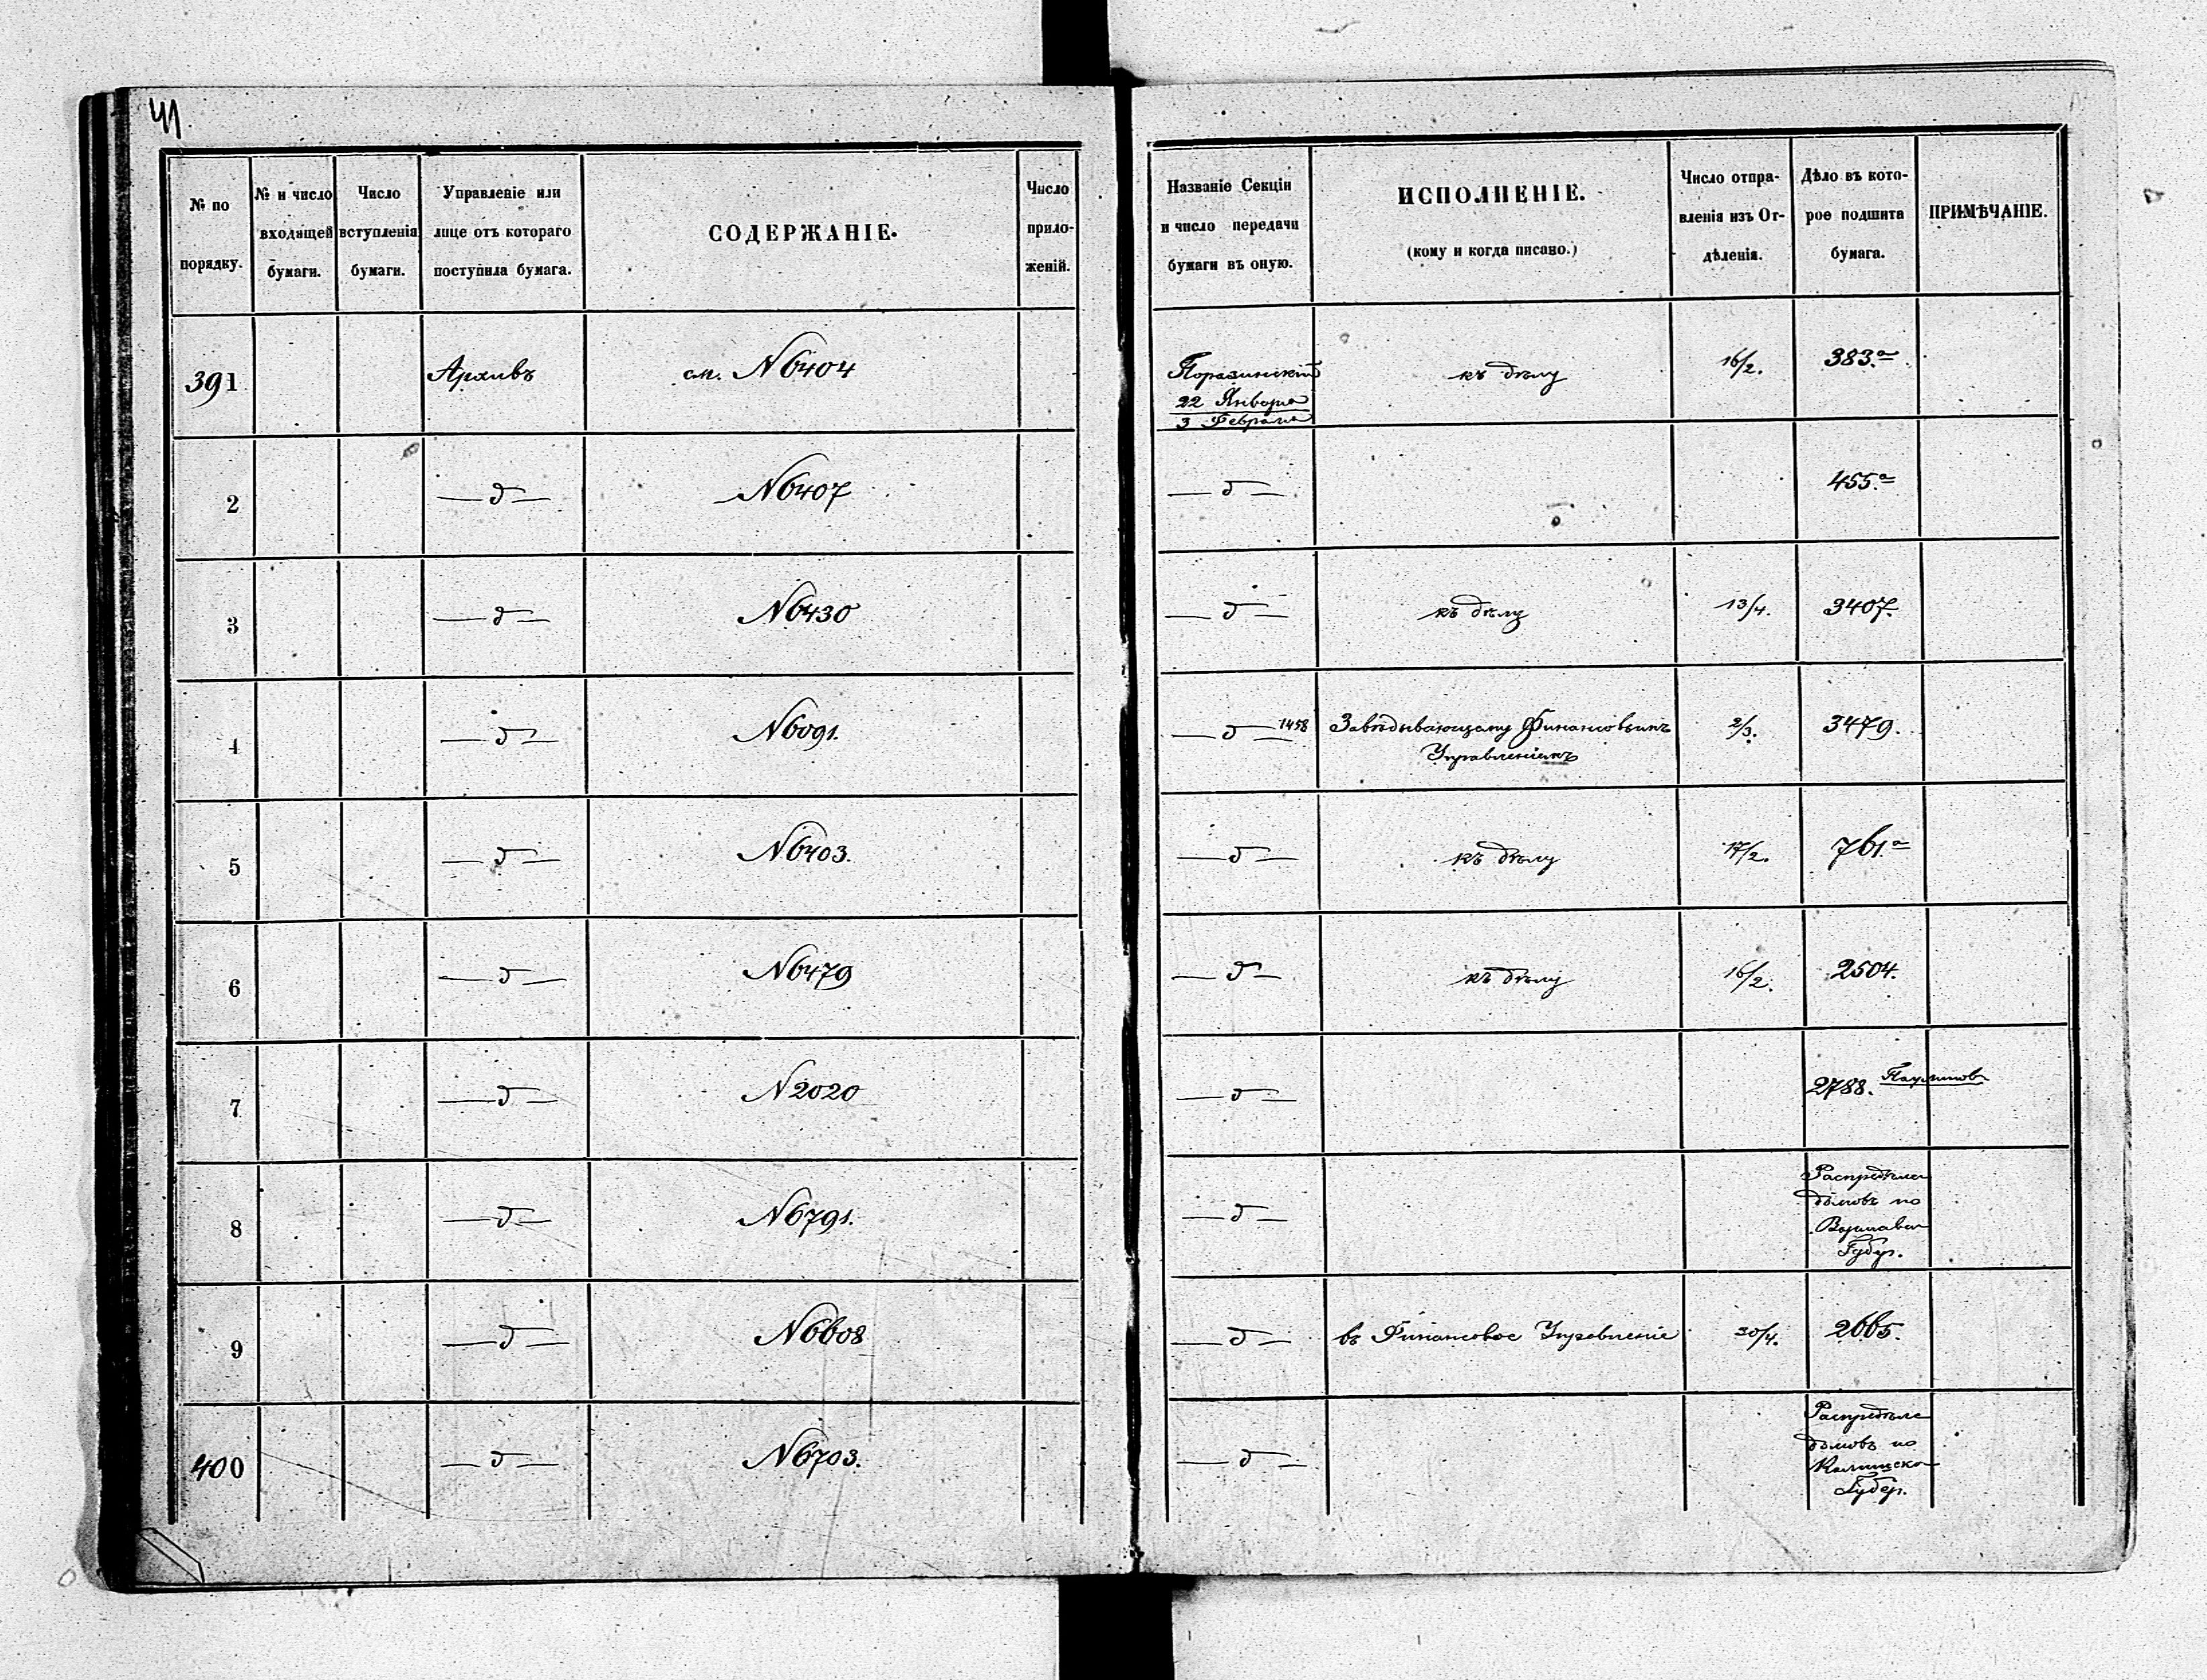 41
№ по порядку.
№ и число входящей бумаги.
Число вступленія бумаги.
Управленіе или лице отъ котораго поступила бумага.
СОДЕРЖАНІЕ.
Число приложеній.
Названіе Секціи и число передачи бумаги въ оную.
ИСПОЛНЕНІЕ.
(кому и когда писано.)
Число отправленія изъ Отдѣленія.
Дѣло въ которое подшита бумага.
ПРИМѢЧАНІЕ.
391 Архивъ см. N6404 22 Января 3 Февраля къ дѣлу 16/2. 383.а
2 — д — N6407 — д — 455.а
3 — д — N6430 — д — къ дѣлу 13/4. 3407.
4 — д — N6091. — д — 1458 Завѣдывающему Финансовымъ Управленіемъ 2/3. 3479.
5 — д — N6403. — д — къ дѣлу 17/2. 761.а
6 — д — N6479 — д — къ дѣлу 16/2. 2504.
7 — д — N2020 — д — 2788.
8 — д — N6791. — д — по Варшавс Губер.
9 — д — N6608 — д — въ Финансовое Управленіе 30/4. 2665.
400 — д — N6703. — д — по Калишско Губер.